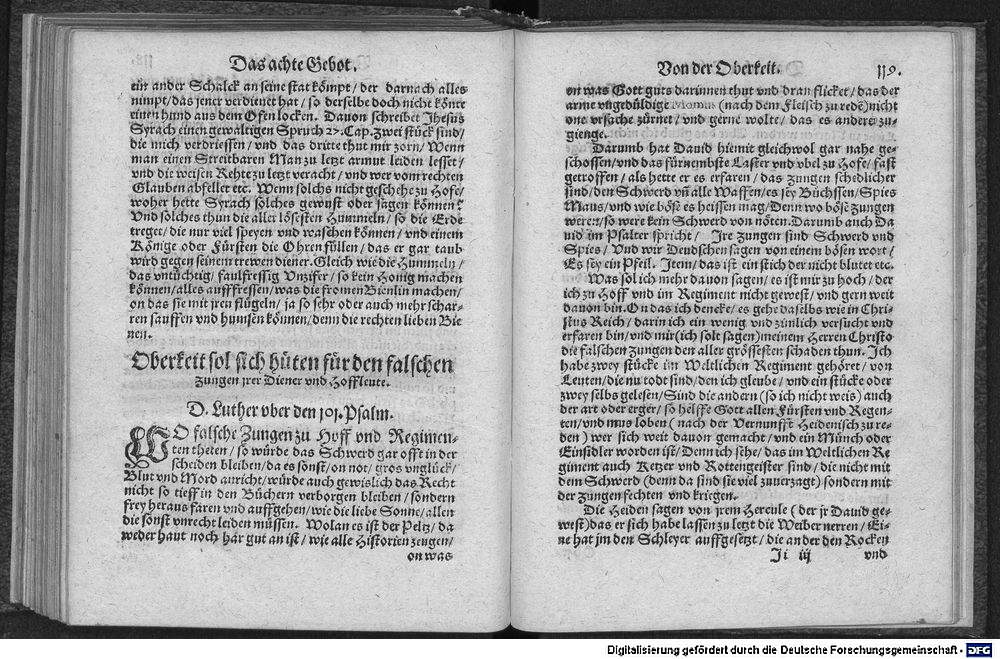 Das achte Gebot.
ein ander Schalck an seine stat kömpt/ der darnach alles
nimpt/das jener verdienet hat/ so derselbe doch nicht könte
einen hund aus dem Ofen locken. Dauon schreibet Jhesus
Syrach einen gewaltigen Spruch 27. Cap. Zwei stück sind/
die mich verdriessen/ vnd das dritte thut mir zorn/ Wenn
man einen Streitbaren Man zu letzt armut leiden lesset/
vnd die weisen Rehte zu letzt veracht/ vnd wer vom rechten
Glauben abfellet etc. Wenn solchs nicht geschehe zu Hofe/
woher hette Syrach solches gewust oder sagen können?
Vnd solches thun die aller lösesten Hummeln/ so die Erde
treget/ die nur viel speyen vnd waschen können/ vnd einem
Könige oder Fürsten die Ohren füllen/ das er gar taub
wird gegen seinem trewen diener. Gleich wie die Hummeln/
das vntüchtig/ faulfressig Vnzifer/ so kein Honig machen
können/alles aufffressen/was die fromen Bienlin machen/
on das sie mit jren flügeln/ ja so sehr oder auch mehr schar-
ren sauffen vnd humsen können/denn die rechten lieben Bie
nen.
Oberkeit sol sich hüten für den falschen
Zungen jrer Diener vnd Hoffleute.
D. Luther vber den 101. Psalm.
WO falsche Zungen zu Hoff vnd Regimen-
ten theten/ so würde das Schwerd gar offt in der
scheiden bleiben/da es sonst/on not/ gros vnglück/
Blut vnd Mord anricht/ würde auch gewislich das Recht
nicht so tieff in den Büchern verborgen bleiben/ sondern
frey heraus faren vnd auffgehen/ wie die liebe Sonne/ allen
die sonst vnrecht leiden müssen. Wolan es ist der Peltz/ da
weder haut noch har gut an ist/ wie alle Historien zeugen/
on was
Von der Oberkeit. 119.
on was Gott guts darinnen thut vnd dran flicket/ das der
arme vngedüldige Momus (nach dem Fleisch zu redẽ) nicht
one vrsache zürnet/ vnd gerne wolte/ das es anders zu-
gienge.
Darumb hat Dauid hiemit gleichwol gar nahe ge-
schossen/vnd das fürnembste Laster vnd vbel zu Hofe/ fast
getroffen/ als hette er es erfaren/ das Zungen schedlicher
sind/den Schwerd vñ alle Waffen/es sey Büchssen/ Spies
Maus/ vnd wie bösẽ es heissen mag/Denn wo bösẽ Zungen
weren/so were kein Schwerd von nöten. Darumb auch Da
uid im Psalter spricht/ Jre Zungen sind Schwerd vnd
Spies/ Vnd wir Deudschen sagen von einem bösen wort/
Es sey ein Pfeil. Item/ das ist ein stich der nicht blutet etc.
Was sol ich mehr dauon sagen/ es ist mir zu hoch/ der
ich zu Hoff vnd im Regiment nicht gewest/ vnd gern weit
dauon bin. On das ich dencke/ es gehe daselbs wie in Chri-
stus Reich/ darin ich ein wenig vnd zimlich versucht vnd
erfaren bin/ vnd mus (ich solt sagen) meinem Herren Christo
die falschen Zungen den aller grössesten schaden thun. Ich
habe zwey stücke im Weltlichen Regiment gehöret/ von
Leuten/die nu todt sind/den ich gleube/ vnd ein stücke oder
zwey selbs gelesen/ Sind die andern (so ich nicht weis) auch
der art oder erger/ so helffe Gott allen Fürsten vnd Regen-
ten/ vnd mus loben (nach der Vernunfft Heidenisch zu re-
den) wer sich weit dauon gemacht/ vnd ein Münch oder
Einsidler worden ist/ Denn ich sehe/ das im Weltlichen Re
giment auch Ketzer vnd Rottengeister sind/ die nicht mit
dem Schwerd (denn da sind sie viel zuuerzagt) sondern mit
der Zungen fechten vnd kriegen.
Die Heiden sagen von jrem Hercule (der jr Dauid ge-
west) das er sich habe lassen zu letzt die Weiber nerren/ Ei-
ne hat jm den Schleyer auffgesetzt/ die ander den Rocken
Ji iij vnd
Digitalisierung gefördert durch die Deutsche Forschungsgemeinschaft - DFG